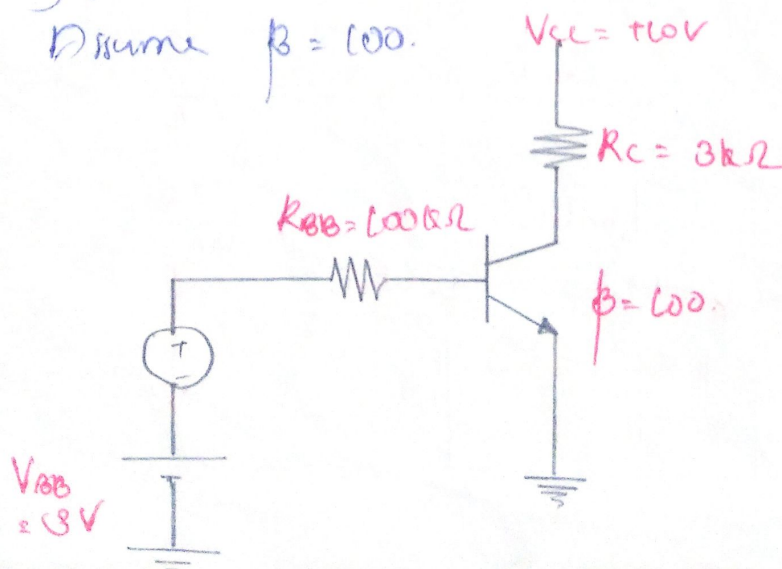 Assume β = 100.
VCC = +10V
RC = 3kΩ
RBB = 100kΩ
β = 100.
+
-
VBB
= 3V